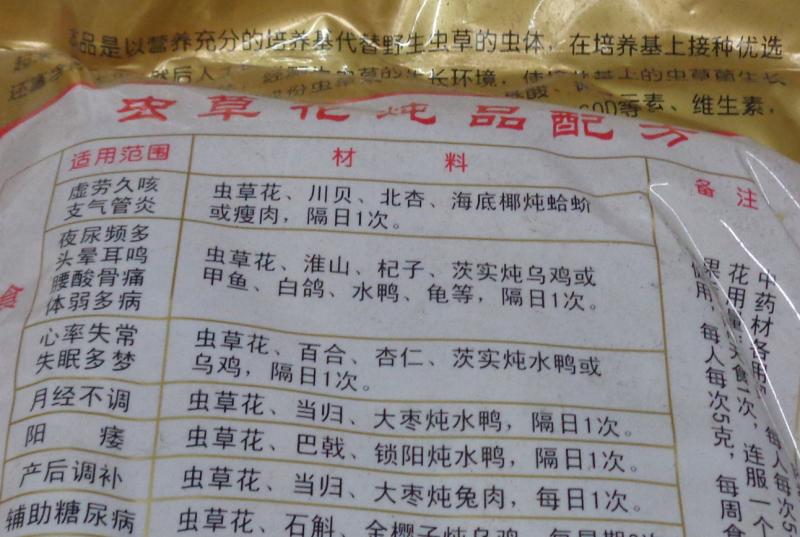 本品是以营养充分的培养基代替野生虫草的虫体，在培养基上接种优选
长环境，使
SOD等素、维生素，
虫草花炖品配方
适用范围
材 料
备注
虚劳久咳
支气管炎
虫草花、川贝、北杏、海底椰炖蛤蚧
或瘦肉，隔日1次。
夜尿频多
头晕耳鸣
腰酸骨痛
体弱多病
虫草花、淮山、杞子、茨实炖乌鸡或
甲鱼、白鸽、水鸭、龟等，隔日1次。
心率失常
失眠多梦
虫草花、百合、杏仁、茨实炖水鸭或
乌鸡，隔日1次。
月经不调
虫草花、当归、大枣炖水鸭，隔日1次。
阳 痿
虫草花、巴戟、锁阳炖水鸭，隔日1次。
产后调补
虫草花、当归、大枣炖兔肉，每日1次。
辅助糖尿病
虫草花、石斛、金樱子炖乌鸡，每星期
中药材各用
，每人每次5
花用
天食
次，连服一个
果
用，每人每次5克，每周食